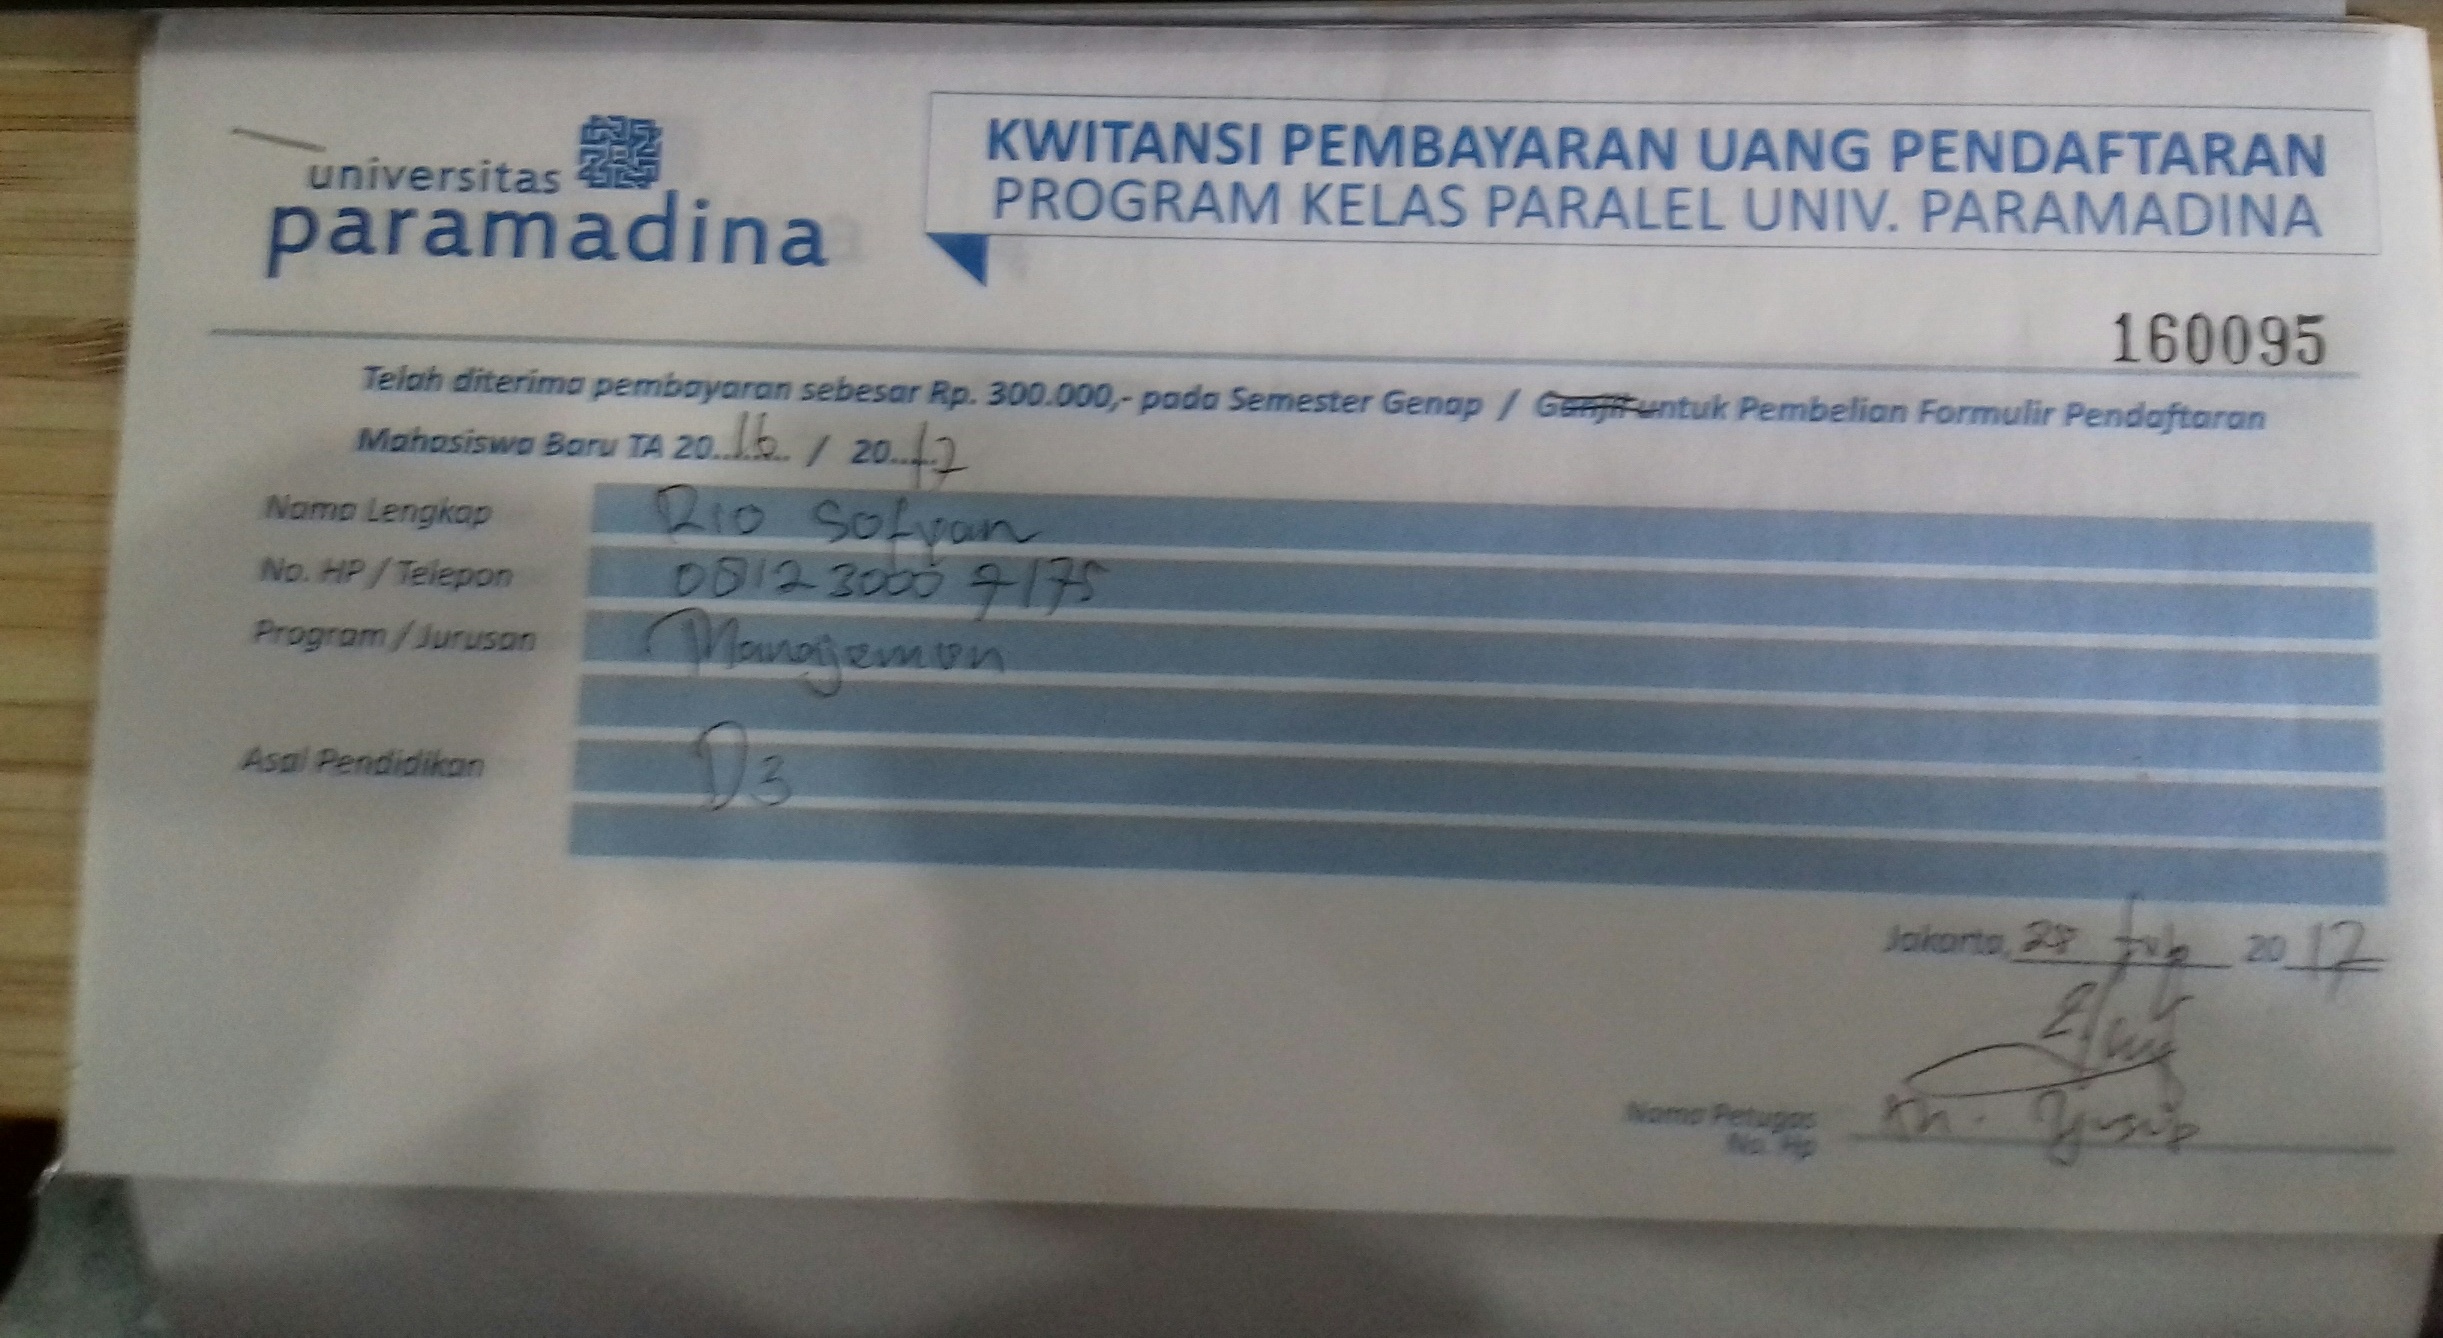 universitas
paramadina
KWITANSI PEMBAYARAN UANG PENDAFTARAN
PROGRAM KELAS PARALEL UNIV. PARAMADINA
160095
Telah diterima pembayaran sebesar Rp. 300.000,- pada Semester Genap / Ganjil untuk Pembelian Formulir Pendaftaran
Mahasiswa Baru TA 20..16.. / 20..17
Nama Lengkap Rio Sofyan
No. HP / Telepon 0812 3000 7175
Program / Jurusan Manajemen
Asal Pendidikan D3
Jakarta, 28 Feb 2017
Nama Petugas
No. Hp